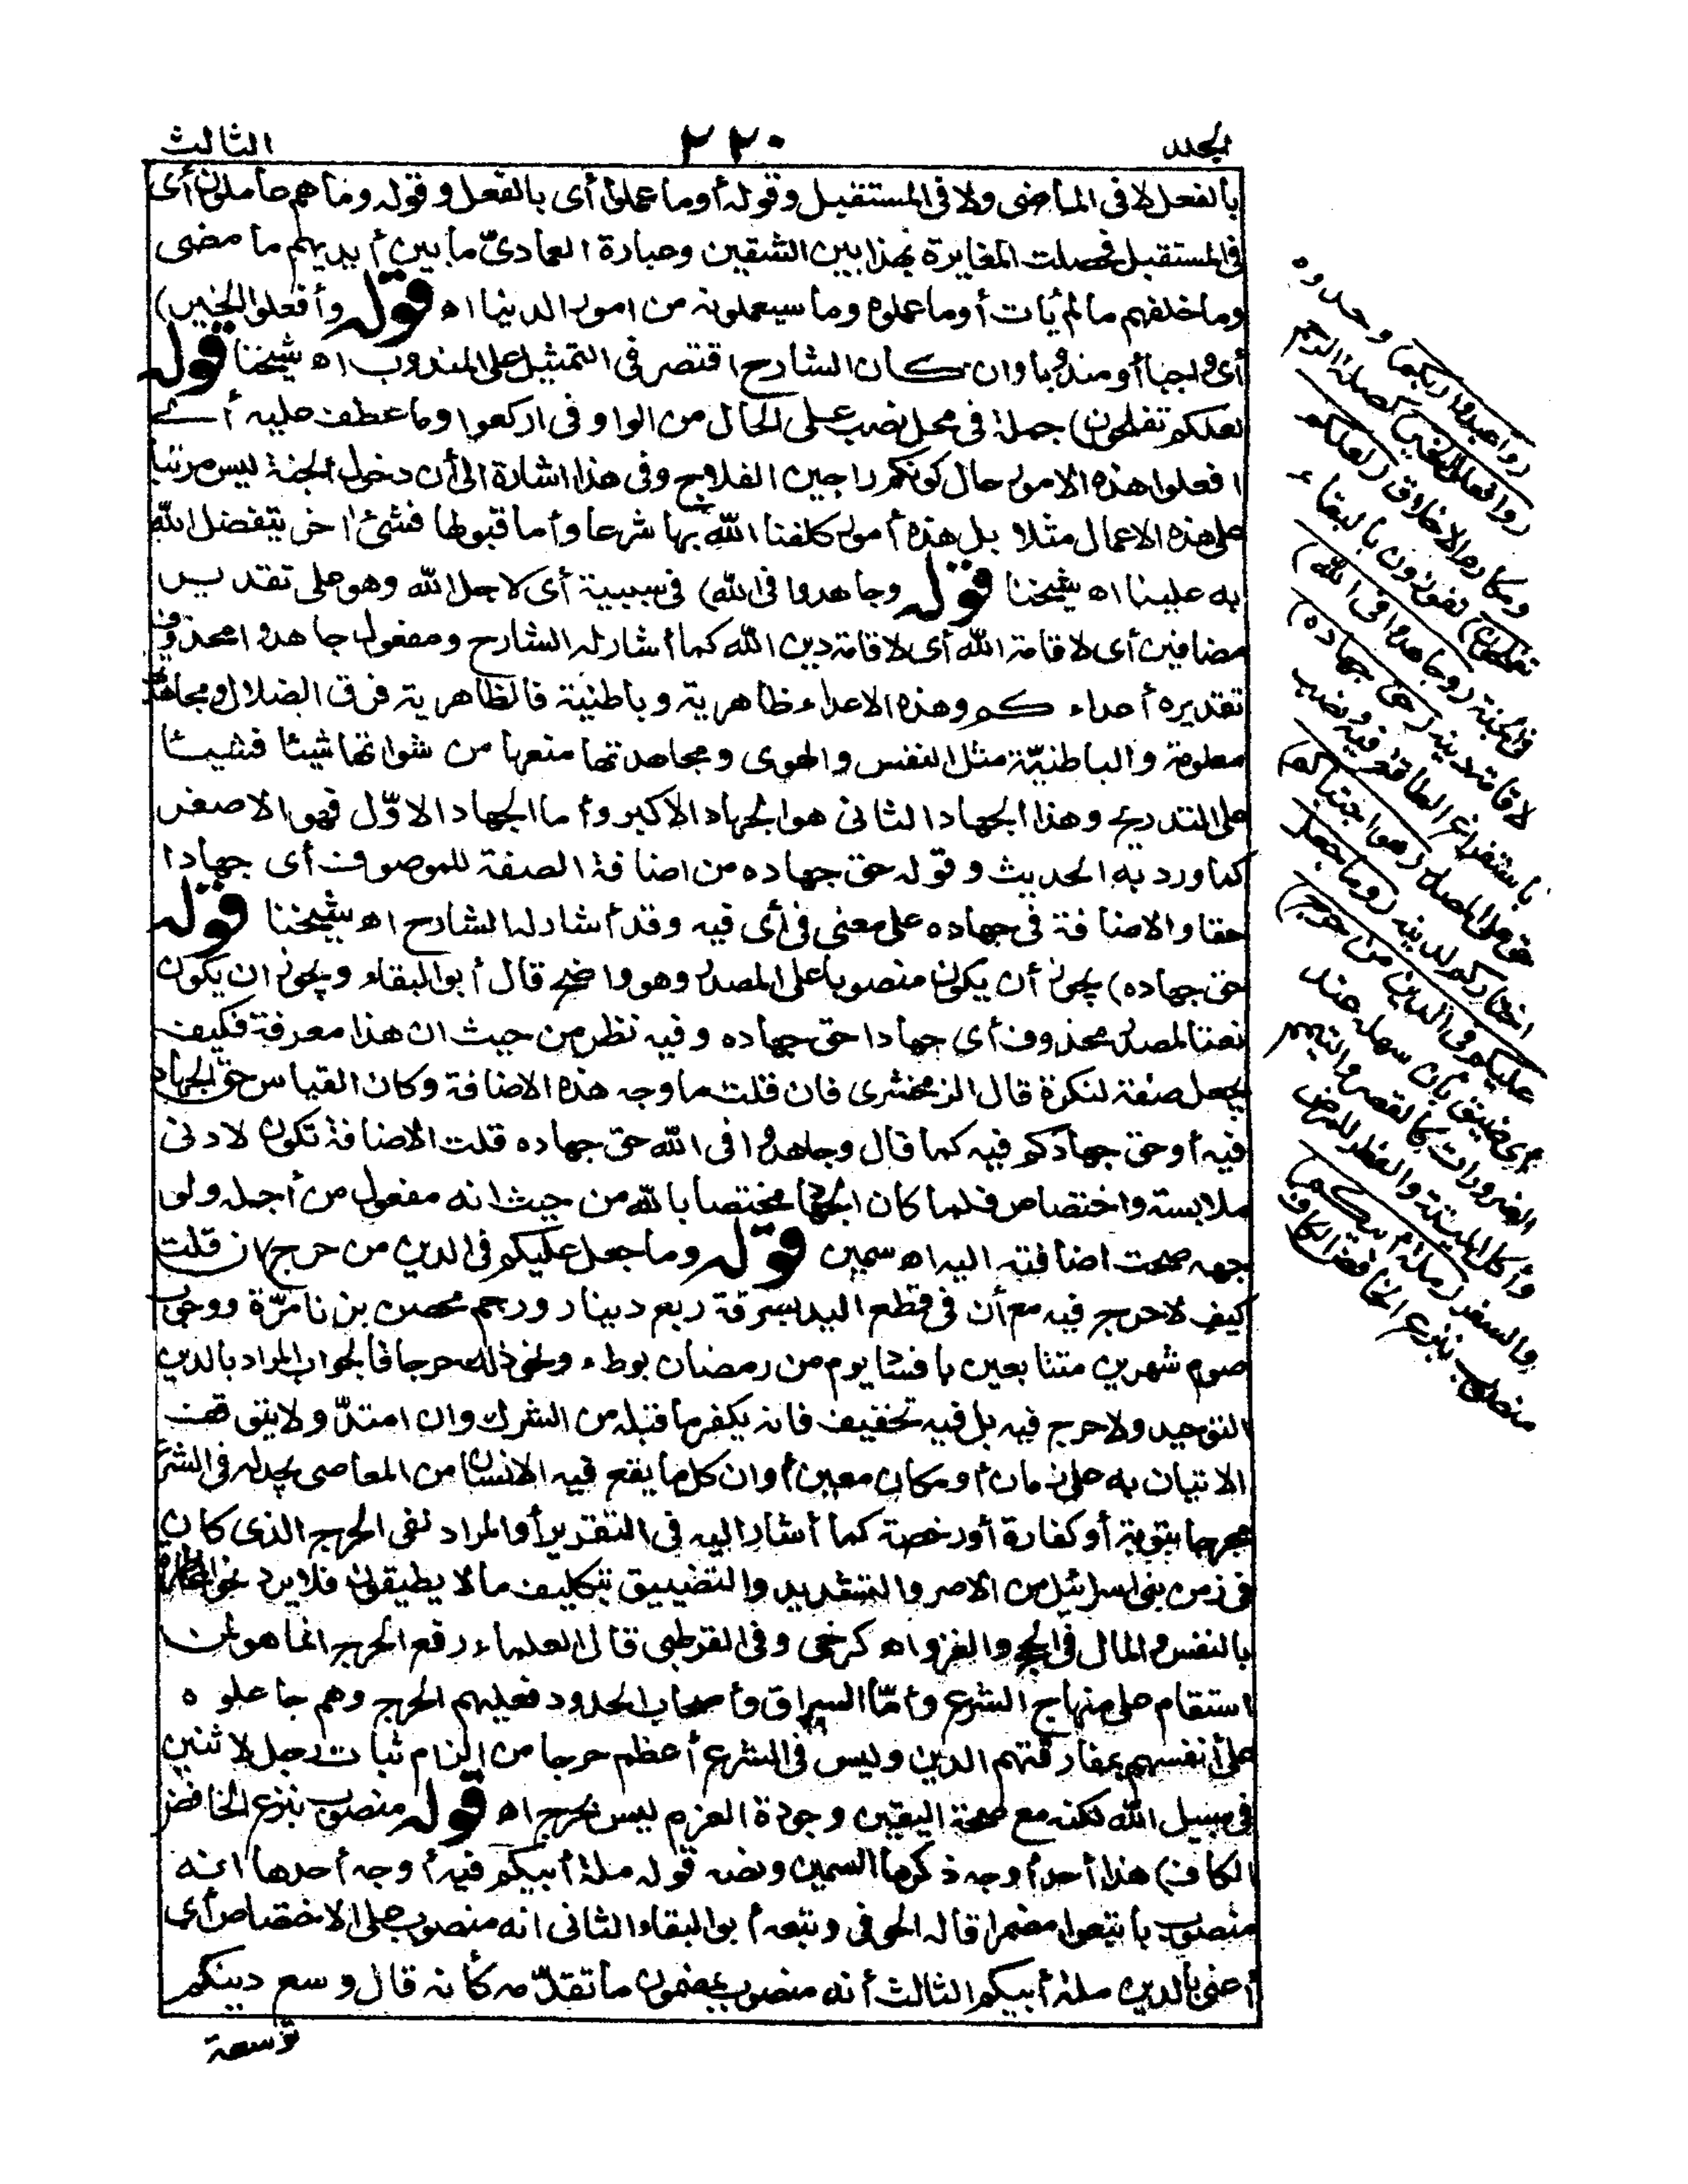 المجلد
٢٢٠
الثالث
بالفعل لا في الماضى ولا فى المستقبل وقوله أو ما عملوا أى بالفعل وقوله وما هم عاملون أى
فى المستقبل فحصلت المغايرة بهذا بين الشقين وعبارة العمادىّ ما بين أيديهم ما مضى
وما خلفهم ما لم يأت أو ما عملوه وما سيعملونه من امور الدنيا اه قوله وأفعلوا الخير)
أى واجبا أو مندوبا وان كان الشارح اقتصر فى التمثيل على المندوب اه شيخنا قوله
لعلكم تفلحون) جملة فى محل نصب على الحال من الواو فى اركعوا وما عطف عليه أى
افعلوا هذه الامور حال كونكم راجين الفلاح وفى هذا اشارة الى أن دخول الجنة ليس مرتبا
على هذه الاعمال مثلا بل هذه أمور كلفنا الله بها شرعا وأما قبولها فشئ اخر يتفضل الله
به علينا اه شيخنا قوله وجاهدوا فى الله) فى سببية أى لاجل الله وهو على تقدير
مضافين أى لاقامة الله أى لاقامة دين الله كما أشار له الشارح ومفعول جاهدوا محذوف
تقديره أعداء كم وهذه الاعداء ظاهرية وباطنية فالظاهرية فرق الضلال ومجاهدتها
معلومة والباطنيّة مثل النفس والهوى ومجاهدتها منعها من شهواتها شيئا فشيئا
على التدريج وهذا الجهاد الثانى هو الجهاد الأكبر وأما الجهاد الاوّل فهو الاصغر
كما ورد به الحديث وقوله حق جهاده من اضافة الصفة للموصوف أى جهادا
حقا والاضافة فى جهاده على معنى فى أى فيه وقد أشار لها الشارح اه شيخنا قوله
حق جهاده) يجوز أن يكون منصوبا على المصدر وهو واضح قال أبو البقاء ويجوز ان يكون
نعتا لمصدر محذوف أى جهادا حق جهاده وفيه نظر من حيث ان هذا معرفة فكيف
يجعل صفة لنكرة قال الزمخشرى فان قلت ما وجه هذه الاضافة وكان القياس حق الجهاد
فيه أو حق جهادكم فيه كما قال وجاهدوا فى الله حق جهاده قلت الاضافة تكون لادنى
ملابسة واختصاص فلما كان الجهاد مختصا بالله من حيث انه مفعول من أجله ولو
جهه صحت اضافته اليه اه سمين قوله وما جعل عليكم فى الدين من حرج) ان قلت
كيف لا حرج فيه مع أن فى قطع اليد بسرقة ربع دينار ورجم محصن بزنا مرّة ووجوب
صوم شهرين متتابعين بافساد يوم من رمضان بوطء ونحو ذلك حرجا فالجواب المراد بالدين
التوحيد ولا حرج فيه بل فيه تخفيف فانه يكفر ما قبله من الشرك وان امتدّ ولا يتوقف
الاتيان به على زمان أو مكان معين أو ان كل ما يقع فيه الانسان من المعاصى يجد له فى الشرع
مخرجا بتوبة أو كفارة أو رخصة كما أشار اليه فى التقرير أو المراد نفى الحرج الذى كان
فى زمن بنى اسرائيل من الاصر والتشديد والتضييق بتكليف ما لا يطيقون فلا يرد نحو المخاطرة
بالنفس والمال فى الحج والغزو اه كرخى وفى القرطبى قال العلماء رفع الحرج انما هو لمن
استقام على منهاج الشرع وأمّا السراق وأصحاب الحدود فعليهم الحرج وهم جاعلوه
على أنفسهم بمفارقتهم الدين وليس فى الشرع أعظم حرجا من الزام ثبات رجل لاثنين
فى سبيل الله لكنه مع صحة اليقين وجودة العزم ليس بحرج اه قوله منصوب بنزع الخافض
الكاف) هذا أحد أوجه ذكرها السمين ونصه قوله ملة أبيكم فيه أوجه أحدها انه
منصوب باتبعوا مضمرا قاله الحوفى وتبعه أبو البقاء الثانى انه منصوب على الاختصاص أى
أعنى بالدين ملة أبيكم الثالث أنه منصوب بمضمون ما تقدّمه كأنه قال وسع دينكم
توسعة
(واعبدوا ربكم) وحدوه
(وافعلوا الخير) كصلة الرحم
ومكارم الاخلاق (لعلكم
تفلحون) تفوزون بالبقاء
فى الجنة (وجاهدوا فى الله)
لاقامة دينه (حق جهاده)
باستفراغ الطاقة فيه ونصب
حق على المصدر (هو اجتباكم)
اختاركم لدينه (وما جعل
عليكم فى الدين من حرج)
أى ضيق بأن سهله عند
الضرورات كالقصر والتيمم
وأكل الميتة والفطر للمرض
والسفر (ملة أبيكم)
منصوب بنزع الخافض الكاف